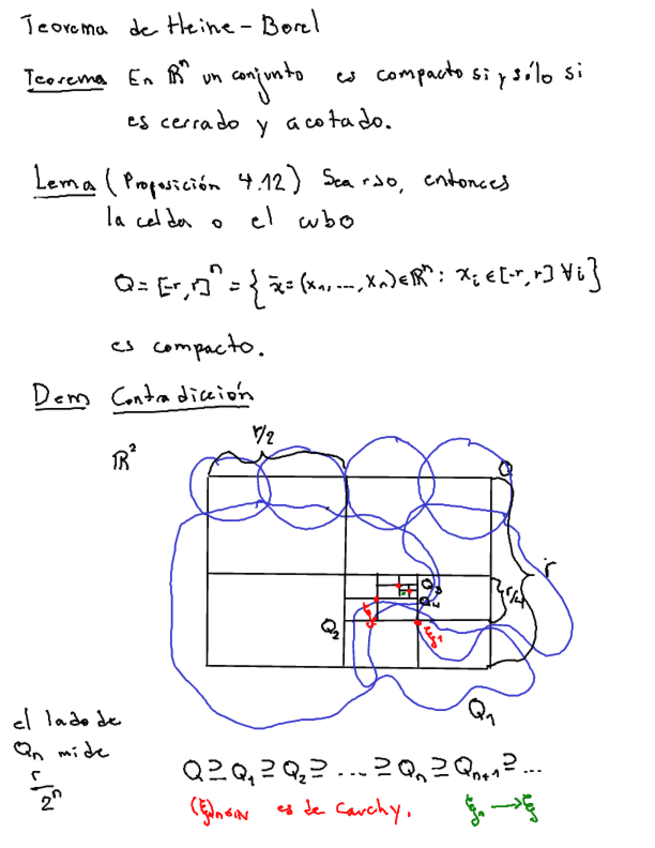 Teorema de Heine-Borel
Teorema En ℝⁿ un conjunto es compacto si y sólo si
es cerrado y acotado.
Lema (Proposición 4.12) Sea r>0, entonces
la celda o el cubo
Q = [-r, r]ⁿ = { x̄ = (x₁, ..., xₙ) ∈ ℝⁿ : xᵢ ∈ [-r, r] ∀i }
es compacto.
Dem Contradicción
ℝ²
r/2
Q
r
r/4
Q₃
Q₄
Q₂
ξ₂
ξ₁
Q₁
el lado de
Qₙ mide
r/2ⁿ
Q ⊇ Q₁ ⊇ Q₂ ⊇ ... ⊇ Qₙ ⊇ Qₙ₊₁ ⊇ ...
(ξₙ)n∈ℕ es de Cauchy. ξₙ → ξ